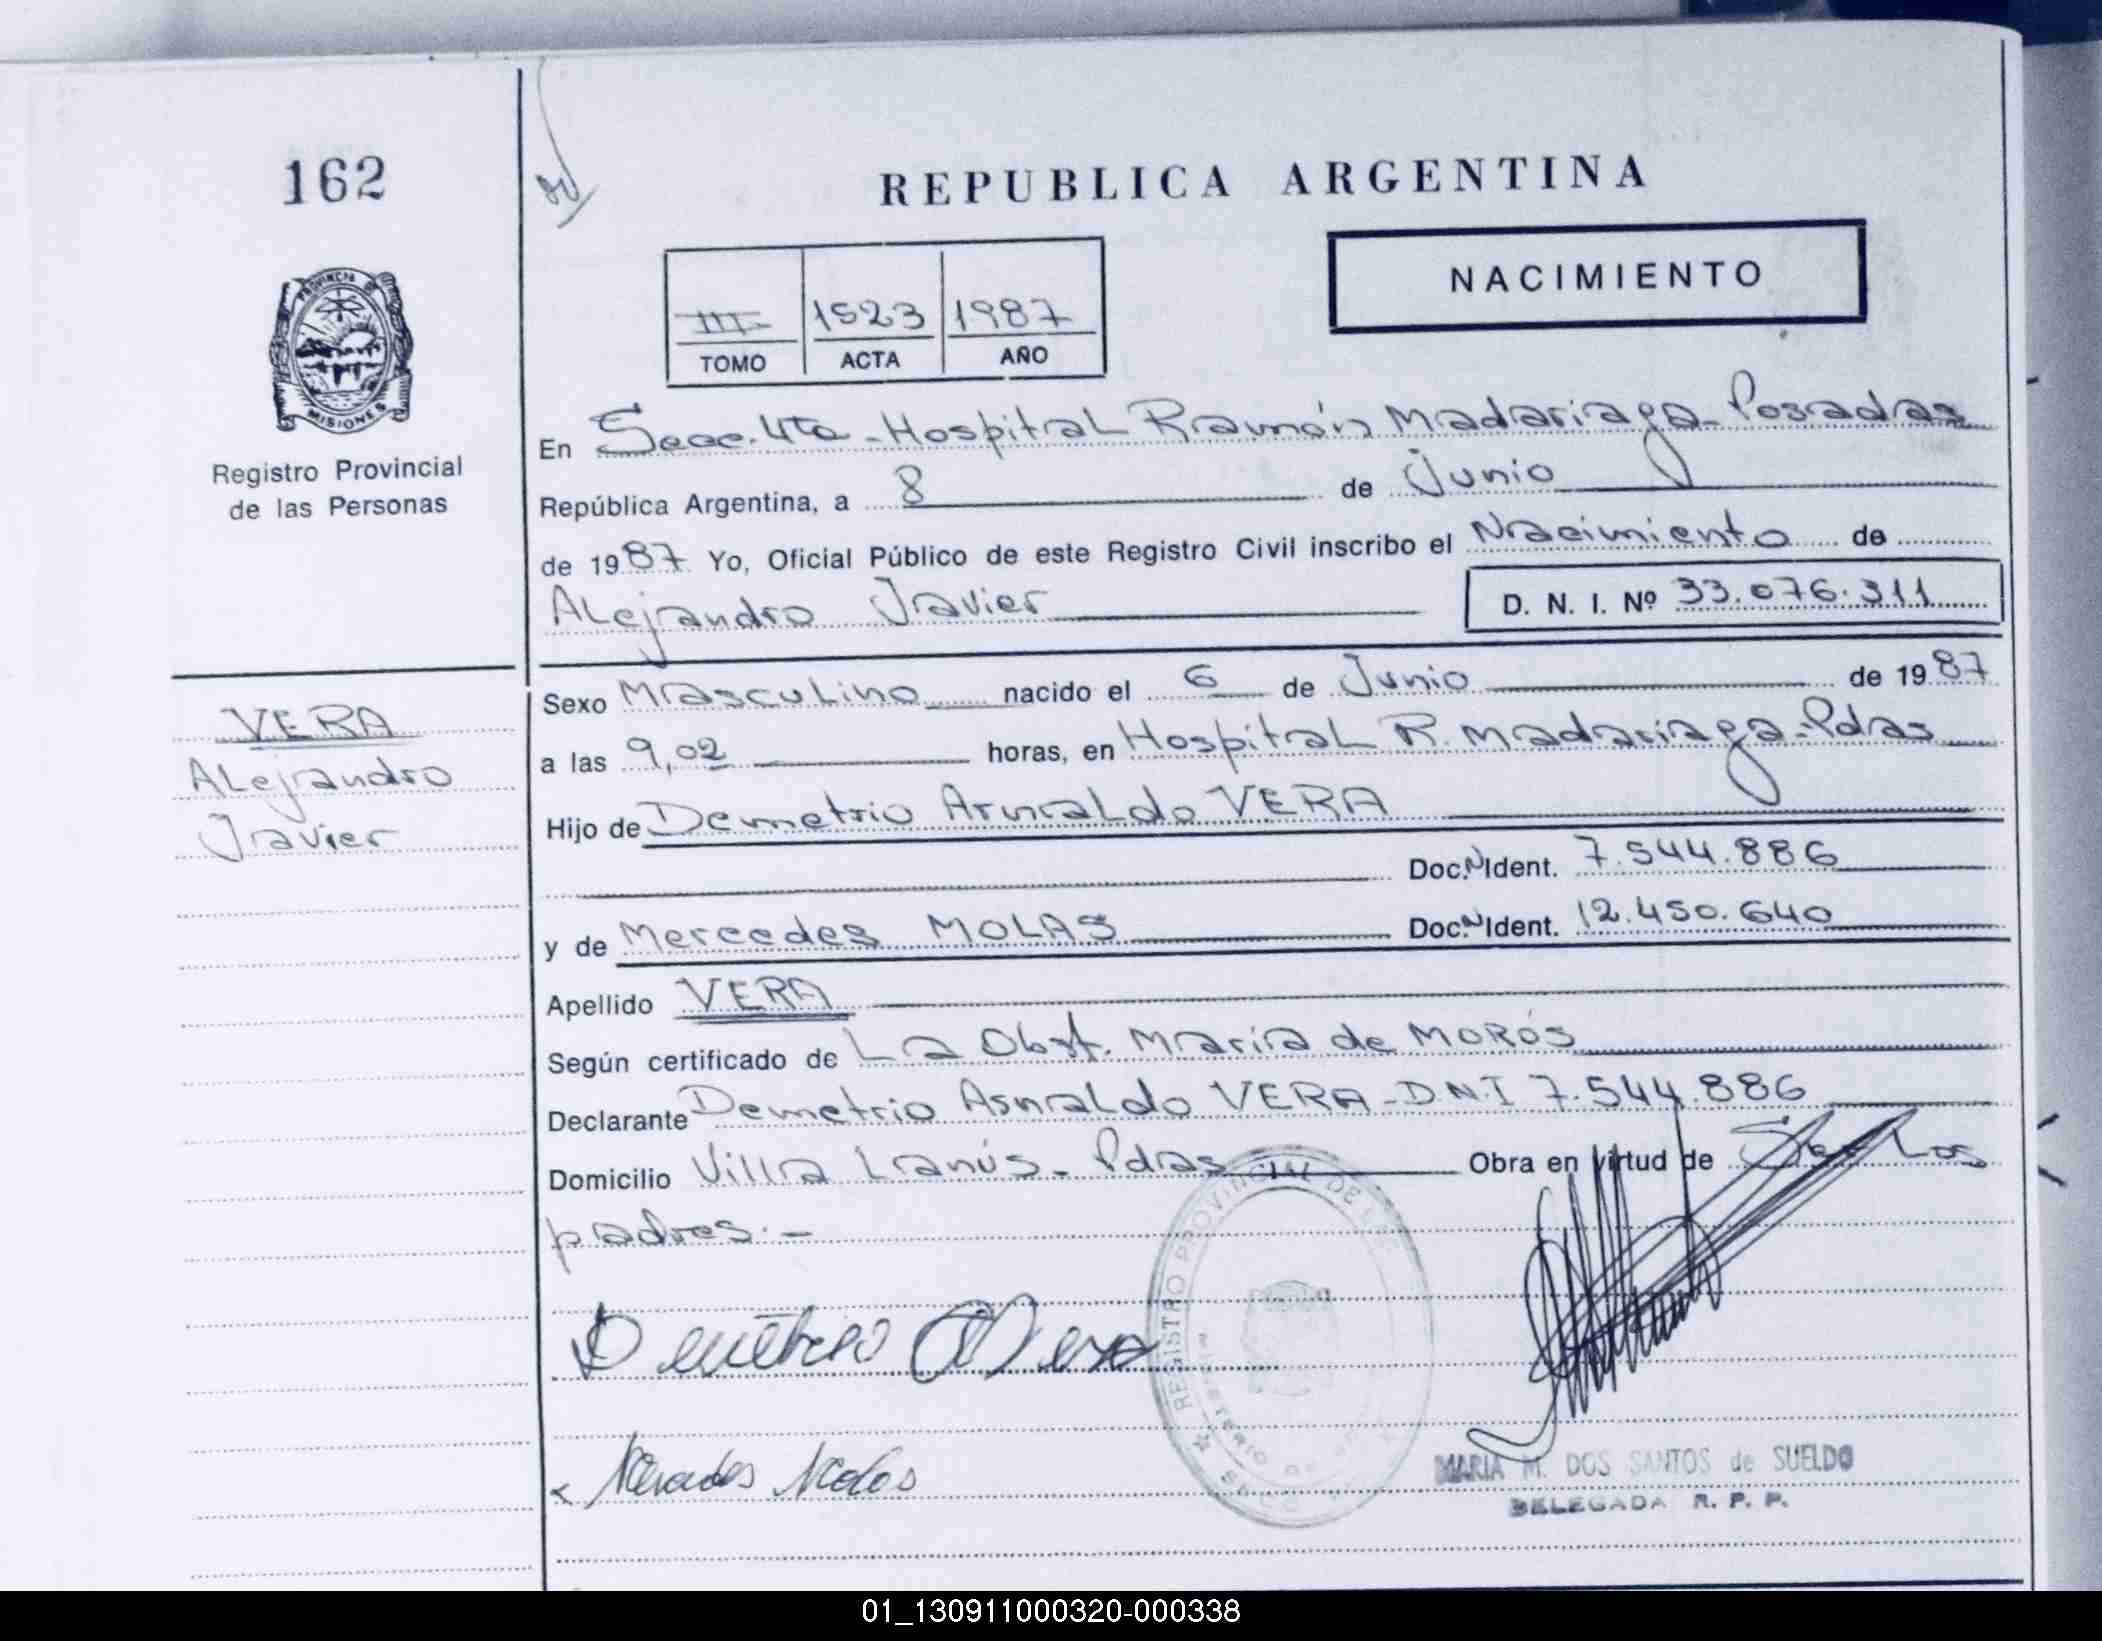 162
REPUBLICA ARGENTINA
NACIMIENTO
III 1523 1987
TOMO ACTA AÑO
PROVINCIA DE
MISIONES
Registro Provincial
de las Personas
En Secc. 4ta - Hospital Ramón Madariaga - Posadas
República Argentina, a 8 de Junio
de 1987 Yo, Oficial Público de este Registro Civil inscribo el Nacimiento de
Alejandro Javier D. N. I. Nº 33.076.311
VERA
Alejandro
Javier
Sexo Masculino nacido el 6 de Junio de 1987
a las 9,02 horas, en Hospital R. Madariaga - Pdas
Hijo de Demetrio Arnaldo VERA
Doc. N Ident. 7.544.886
y de Mercedes MOLAS Doc. N Ident. 12.450.640
Apellido VERA
Según certificado de La Obst. Maria de MORÓS
Declarante Demetrio Arnaldo VERA - D.N.I 7.544.886
Domicilio Villa Lanús - Pdas Obra en virtud de Ser Los
padres. -
Demetrio A Vera
REGISTRO PROVINCIAL DE LAS
Mercedes Molas
MARIA M. DOS SANTOS de SUELDO
DELEGADA R. P. P.
01_130911000320-000338